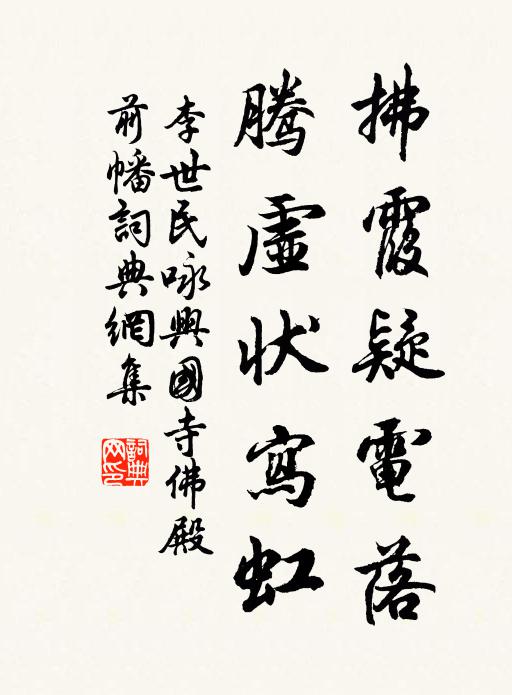 拂霞疑電落
騰虛狀寫虹
李世民咏興國寺佛殿
前幡詞典網集
詞典
网印